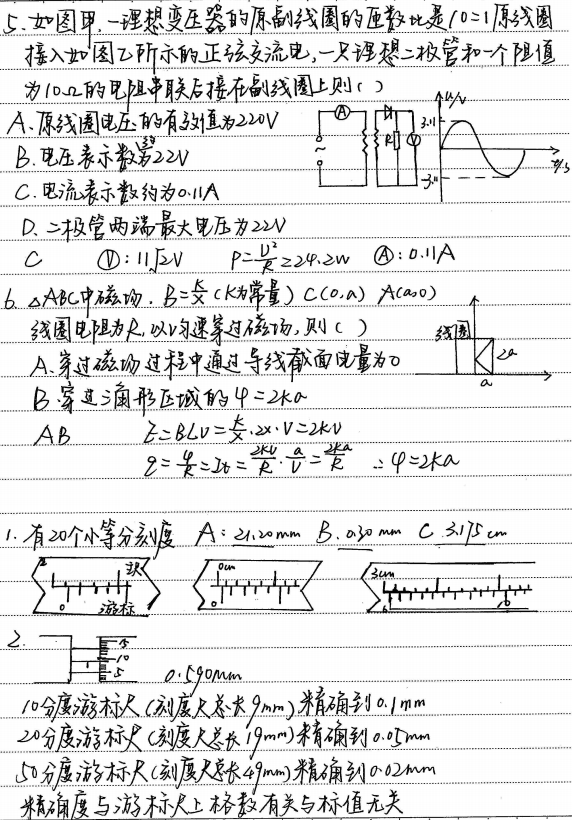 5、如图甲,一理想变压器的原副线圈的匝数比是10:1原线圈
接入如图乙所示的正弦交流电,一只理想二极管和一个阻值
为10Ω的电阻串联后接在副线圈上则( )
A、原线圈电压的有效值为220V
B、电压表示数为22V
C、电流表示数约为0.11A
D、二极管两端最大电压为22V
A R V u/V 311 -311 t/s
C Ⓥ:11√2V P=U²/R=24.2W Ⓐ:0.11A
6、△ABC中磁场,B=k/x(K为常量)C(0,a) A(a,0)
线圈电阻为R,以V匀速穿过磁场,则( )
线圈 2a a
A、穿过磁场过程中通过导线截面电量为0
B、穿过三角形区域的φ=2ka
AB E=BLV=k/x·2x·V=2kV
q=φ/R=It=2kV/R·a/V=2ka/R ∴φ=2ka
1、有20个小等分刻度 A:21.20mm B、0.30mm C 3.175cm
2 主尺 0 游标
0cm 0
3cm 10
2.
15 10 5
0.590mm
10分度游标尺(刻度尺总长9mm)精确到0.1mm
20分度游标尺(刻度尺总长19mm)精确到0.05mm
50分度游标尺(刻度尺总长49mm)精确到0.02mm
精确度与游标尺上格数有关与标值无关